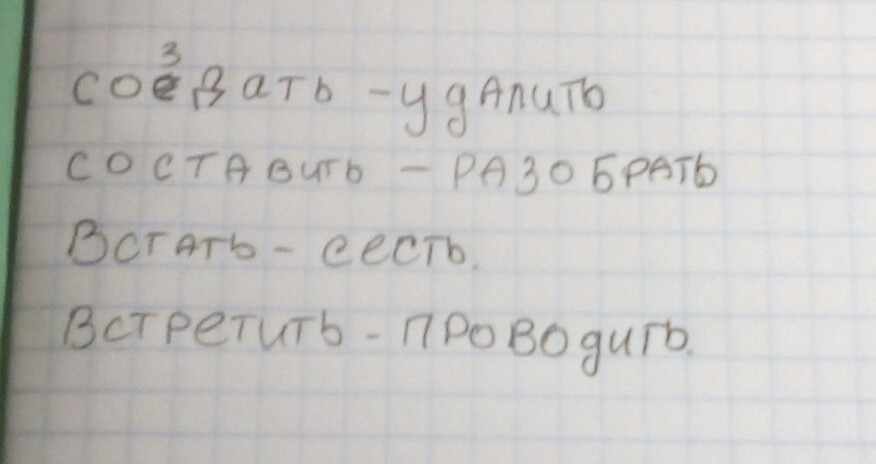 создать - удалить
составить - РАЗОБРАТЬ
Встать - сесть.
Встретить - проводить.